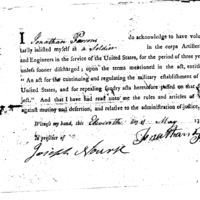 I Jonathan Parsons do acknowledge to have volu
tarily inlisted myself as a Soldier in the corps Artiller
and Engineers in the service of the United States, for the period of three ye
unless sooner discharged; upon the terms mentioned in the act, entitl
" An act for the continuing and regulating the military establishment of
United States, and for repealing sundry acts heretofore passed on that
ject." And that I have had read unto me the rules and articles
against mutiny and desertion, and relative to the administration of justice,
Witness my hand, this Eleventh day of May 17
In presence of Jonathan
Joseph